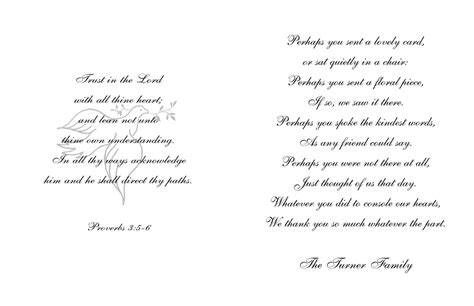 Trust in the Lord
with all thine heart;
and lean not unto
thine own understanding.
In all thy ways acknowledge
him and he shall direct thy paths.
Proverbs 3:5-6
Perhaps you sent a lovely card,
or sat quietly in a chair:
Perhaps you sent a floral piece,
If so, we saw it there.
Perhaps you spoke the kindest words,
As any friend could say.
Perhaps you were not there at all,
Just thought of us that day.
Whatever you did to console our hearts,
We thank you so much whatever the part.
The Turner Family